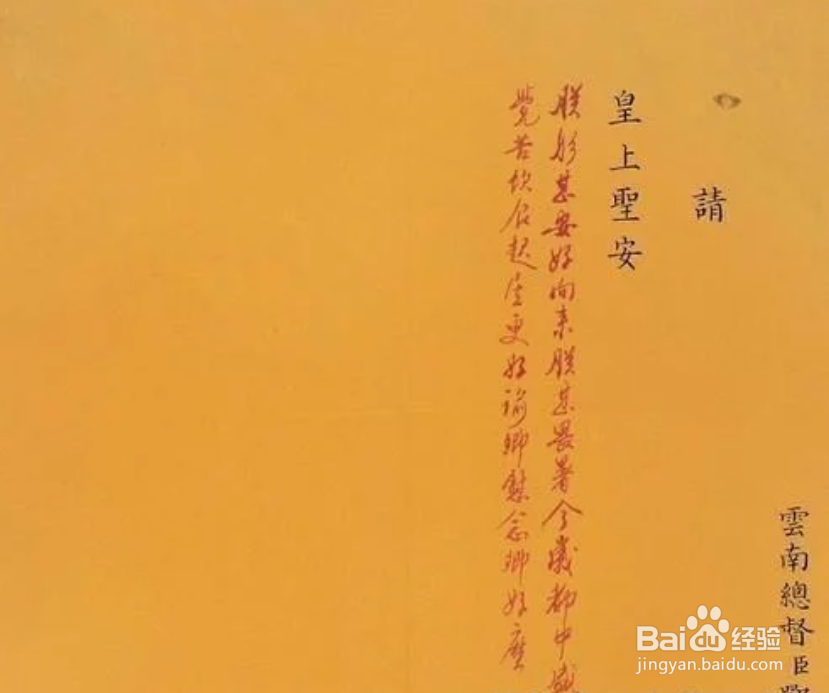 雲南總督臣
請
皇上聖安
朕躬甚安好向來朕甚畏暑今歲都中盛
覺苦飲食起居更好諭卿慰念卿好麼
Baidu经验
jingyan.baidu.com